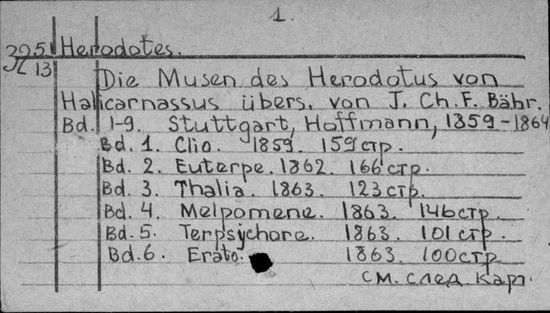 1.
325 Herodotes.
JL 13
Die Musen des Herodotus von
Halicarnassus übers. von J. Ch. F. Bähr.
Bd. 1-9. Stuttgart, Hoffmann, 1859-1864
Bd. 1. Clio. 1859. 159 стр.
Bd. 2. Euterpe. 1862. 166 стр.
Bd. 3. Thalia. 1863. 123 стр.
Bd. 4. Melpomene. 1863. 146 стр.
Bd. 5. Terpsychore. 1863. 101 стр.
Bd. 6. Erato. 1863. 100 стр.
см. след. карт.